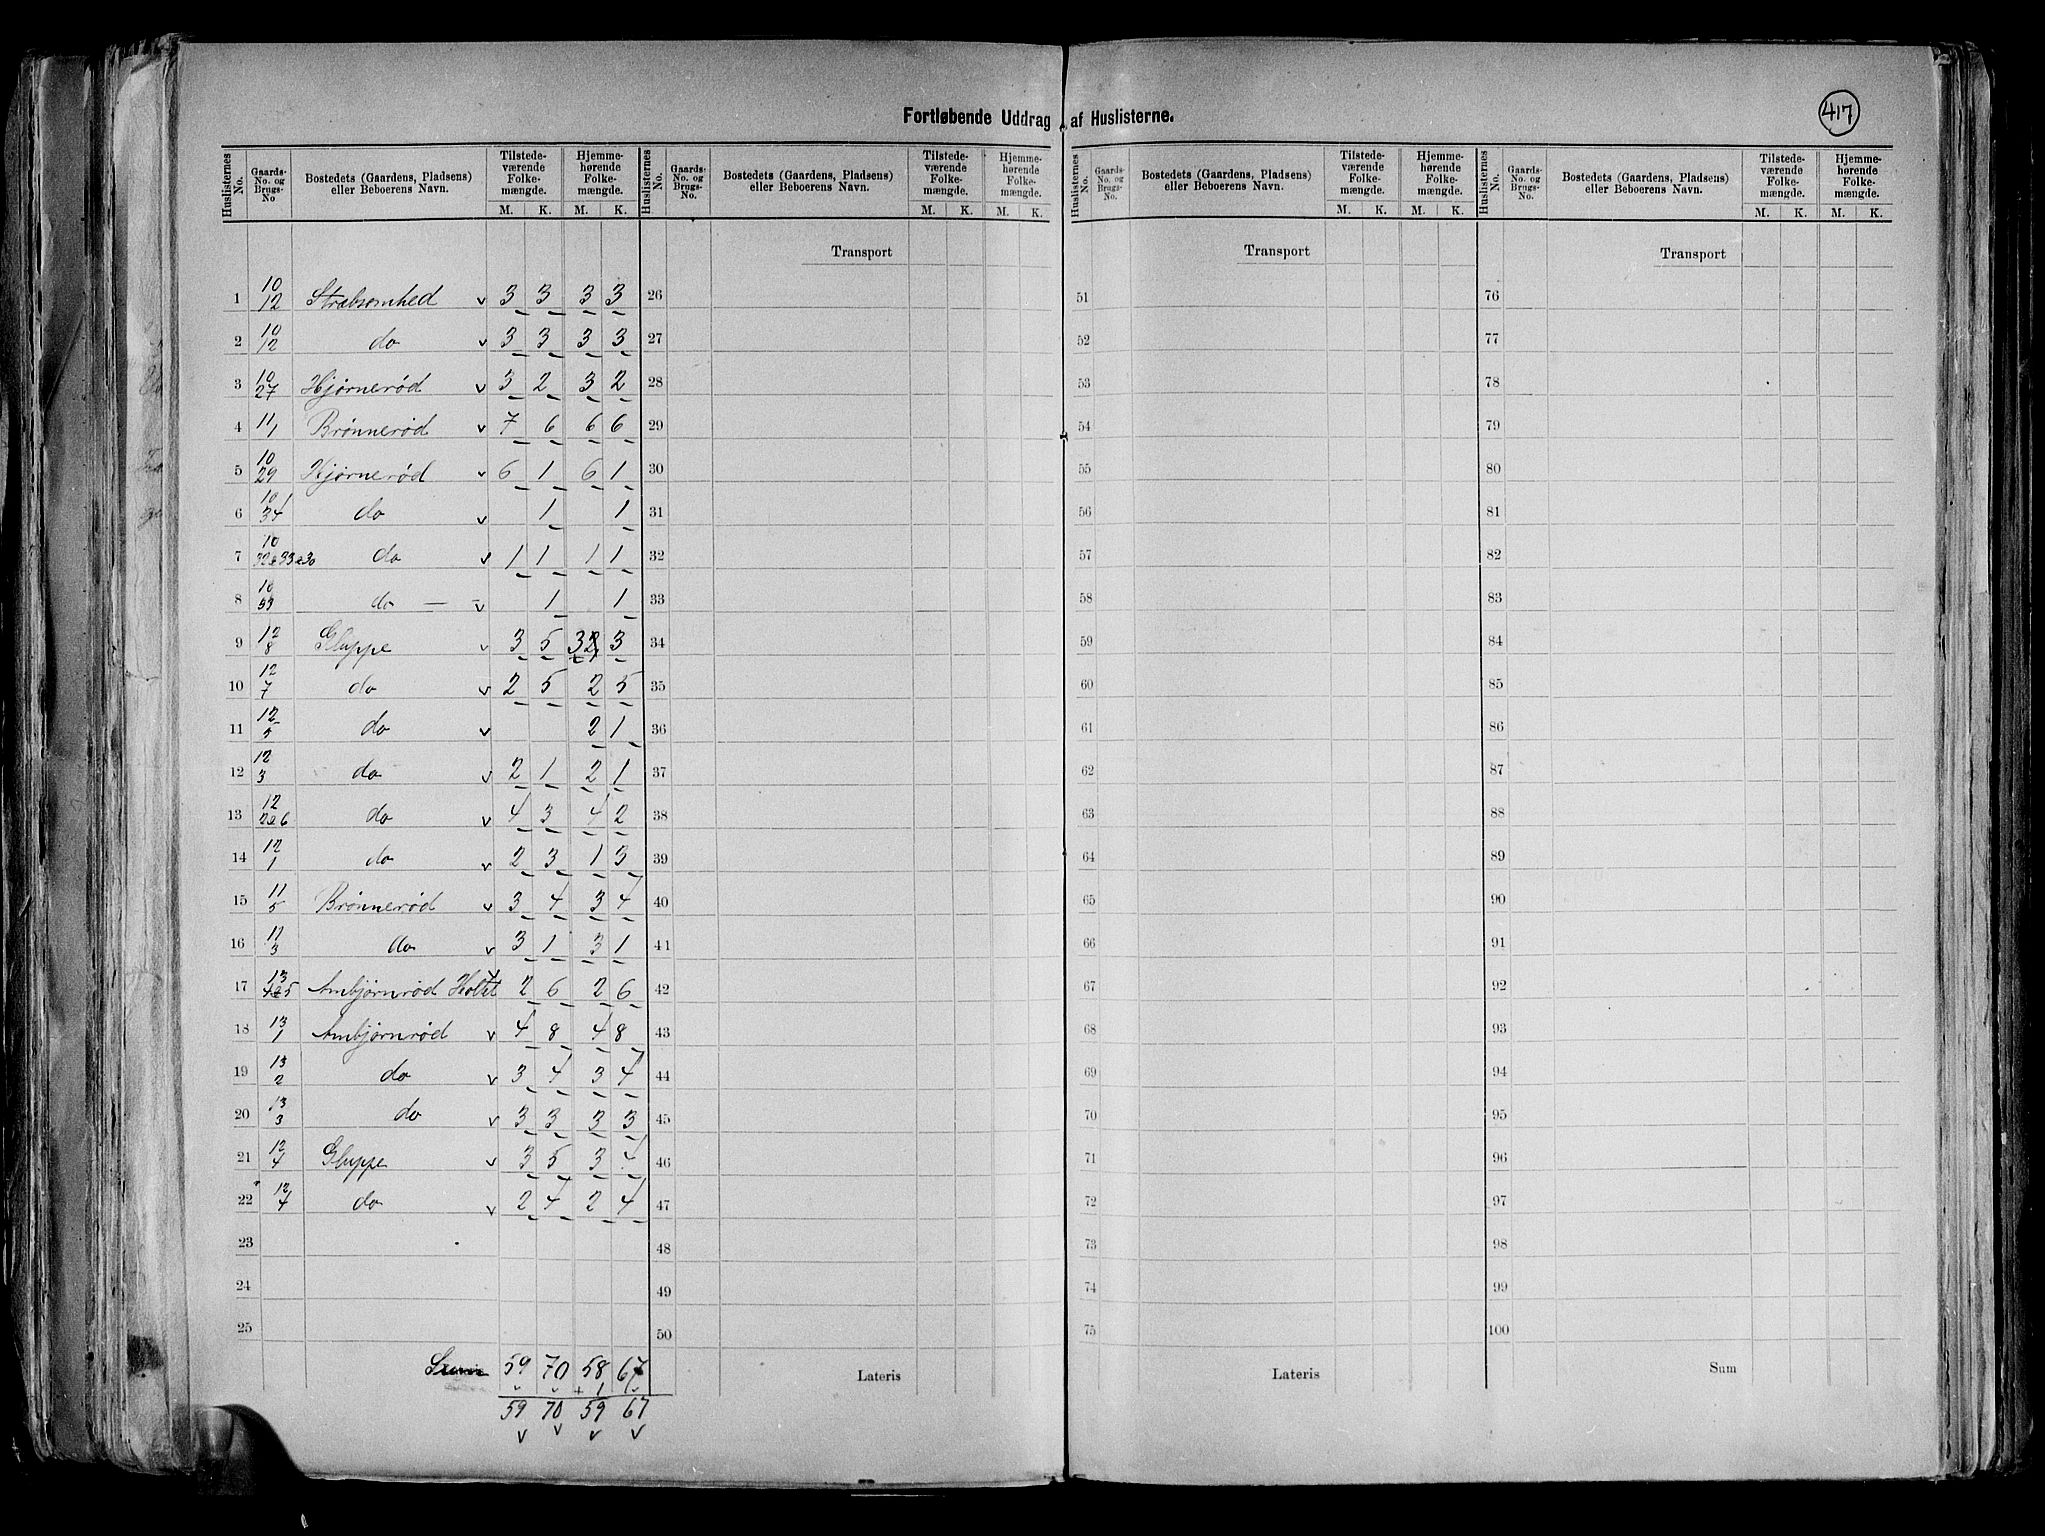 417
Fortløbende Uddrag af Huslisterne.
Huslisternes No. Gaards-No. og Brugs-No Bostedets (Gaardens, Pladsens) eller Beboerens Navn. Tilstedeværende Folkemængde. M. K. Hjemmehørende Folkemængde. M. K.
Huslisternes No. Gaards-No. og Brugs-No. Bostedets (Gaardens, Pladsens) eller Beboerens Navn. Tilstedeværende Folkemængde. M. K. Hjemmehørende Folkemængde. M. K.
Huslisternes No. Gaards-No. og Brugs-No. Bostedets (Gaardens, Pladsens) eller Beboerens Navn. Tilstedeværende Folkemængde. M. K. Hjemmehørende Folkemængde. M. K.
Huslisternes No. Gaards-No. og Brugs-No. Bostedets (Gaardens, Pladsens) eller Beboerens Navn. Tilstedeværende Folkemængde. M. K. Hjemmehørende Folkemængde. M. K.
Transport Transport Transport
1 10/12 Stræbsomhed v 3 3 3 3 26 51 76
2 10/12 do v 3 3 3 3 27 52 77
3 10/27 Hjørnerød v 3 2 3 2 28 53 78
4 11/1 Brønnerød v 7 6 6 6 29 54 79
5 10/29 Hjørnerød v 6 1 6 1 30 55 80
6 10/34 do v 1 1 31 56 81
7 10/32&33&30 do v 1 1 1 1 32 57 82
8 10 do — v 1 1 33 58 83
9 12/8 Gluppe v 3 5 3 3 34 59 84
10 12/7 do v 2 5 2 5 35 60 85
11 12/5 do v 2 1 36 61 86
12 12/3 do v 2 1 2 1 37 62 87
13 12/2&6 do v 4 3 4 2 38 63 88
14 12/1 do v 2 3 1 3 39 64 89
15 11/5 Brønnerød v 3 4 3 4 40 65 90
16 11/3 do v 3 1 3 1 41 66 91
17 13/4&5 Ambjørnrød Holtet v 2 6 2 6 42 67 92
18 13/1 Ambjørnrød v 4 8 4 8 43 68 93
19 13/2 do v 3 4 3 4 44 69 94
20 13/3 do v 3 3 3 3 45 70 95
21 12/4 Gluppe v 3 5 3 4 46 71 96
22 12/4 do v 2 4 2 4 47 72 97
23 48 73 98
24 49 74 99
25 50 75 100
Sum 59 70 58 67 Lateris Lateris Sum
+ 1
59 70 59 67
v v v v